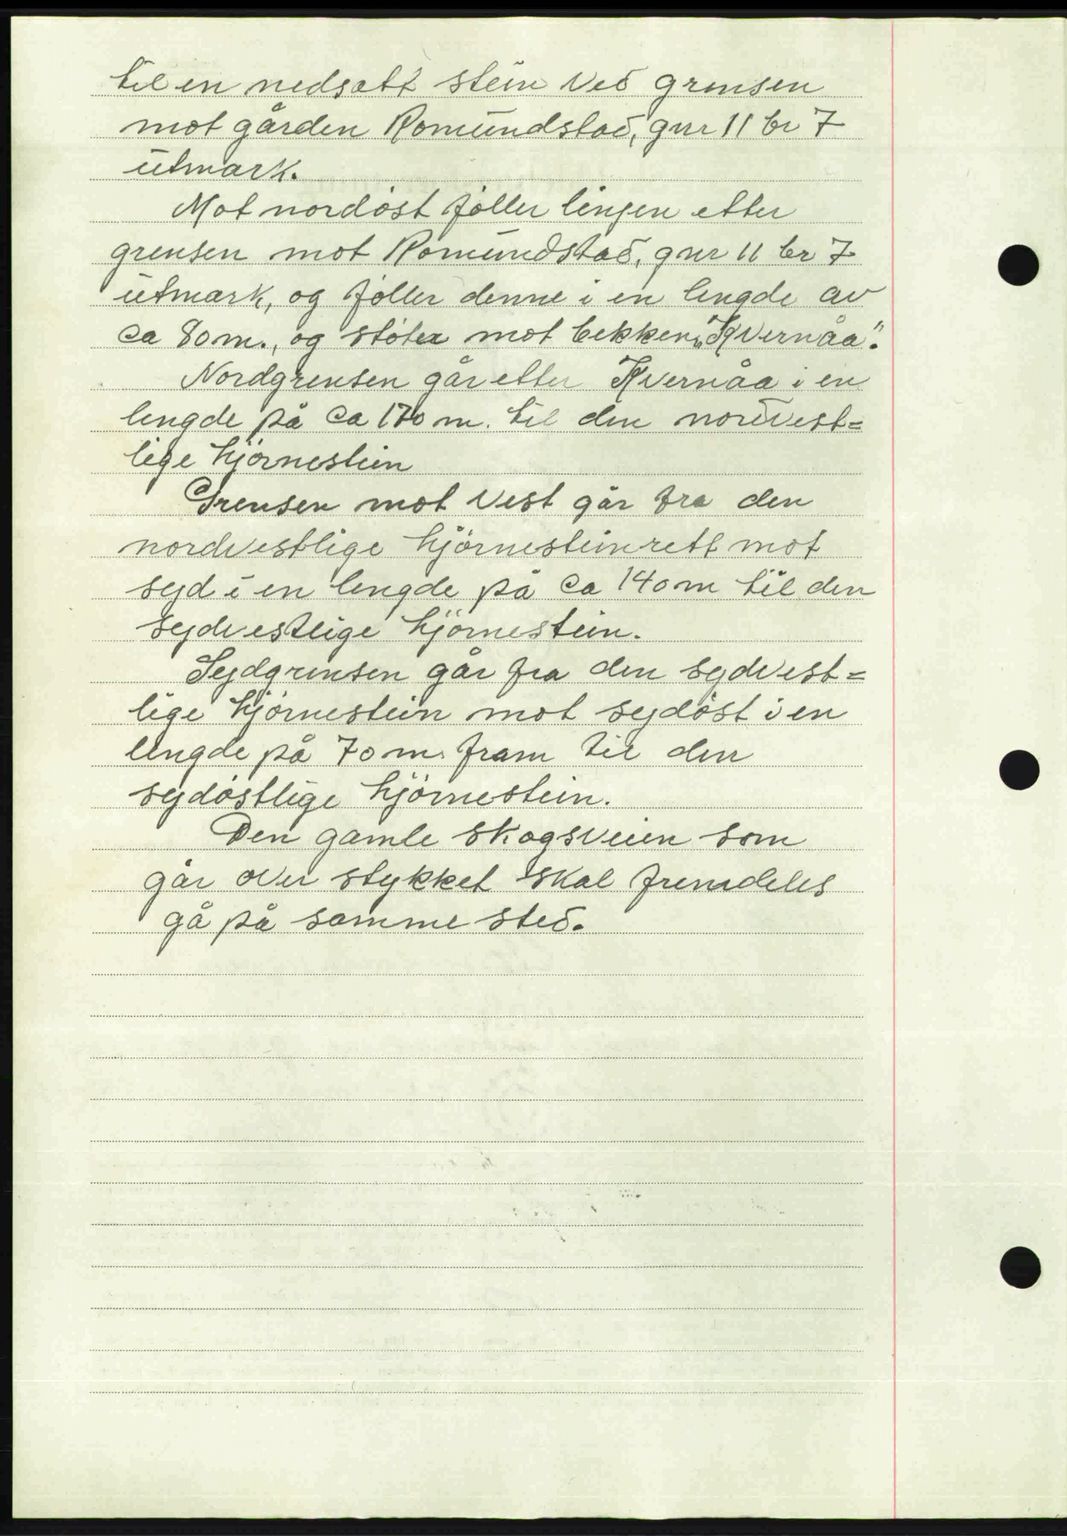 til en nedsatt stein ved grensen
mot gården Romundstad, gnr 11 br 7
utmark.
Mot nordöst föller linjen etter
grensen mot Romundstad, gnr 11 br 7
utmark, og föller denne i en lengde av
ca 80 m., og stöter mot bekken „Kvernåa".
Nordgrensen går etter Kvernåa i en
lengde på ca 170 m. til den nordvest=
lige hjörnestein
Grensen mot vest går fra den
nordvestlige hjörnestein rett mot
syd i en lengde på ca 140 m til den
sydvestlige hjörnestein.
Sydgrensen går fra den sydvest=
lige hjörnestein mot sydöst i en
lengde på 70 m. fram til den
sydöstlige hjörnestein.
Den gamle skogsveien som
går over stykket skal fremdeles
gå på samme sted.